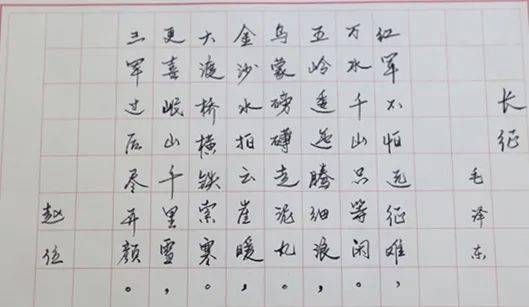 长征
毛泽东
红军不怕远征难，
万水千山只等闲。
五岭逶迤腾细浪，
乌蒙磅礴走泥丸。
金沙水拍云崖暖，
大渡桥横铁索寒。
更喜岷山千里雪，
三军过后尽开颜。
赵